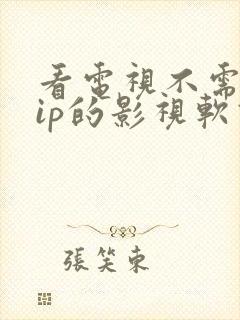 看電視不需
ip的影視軟
張笑東